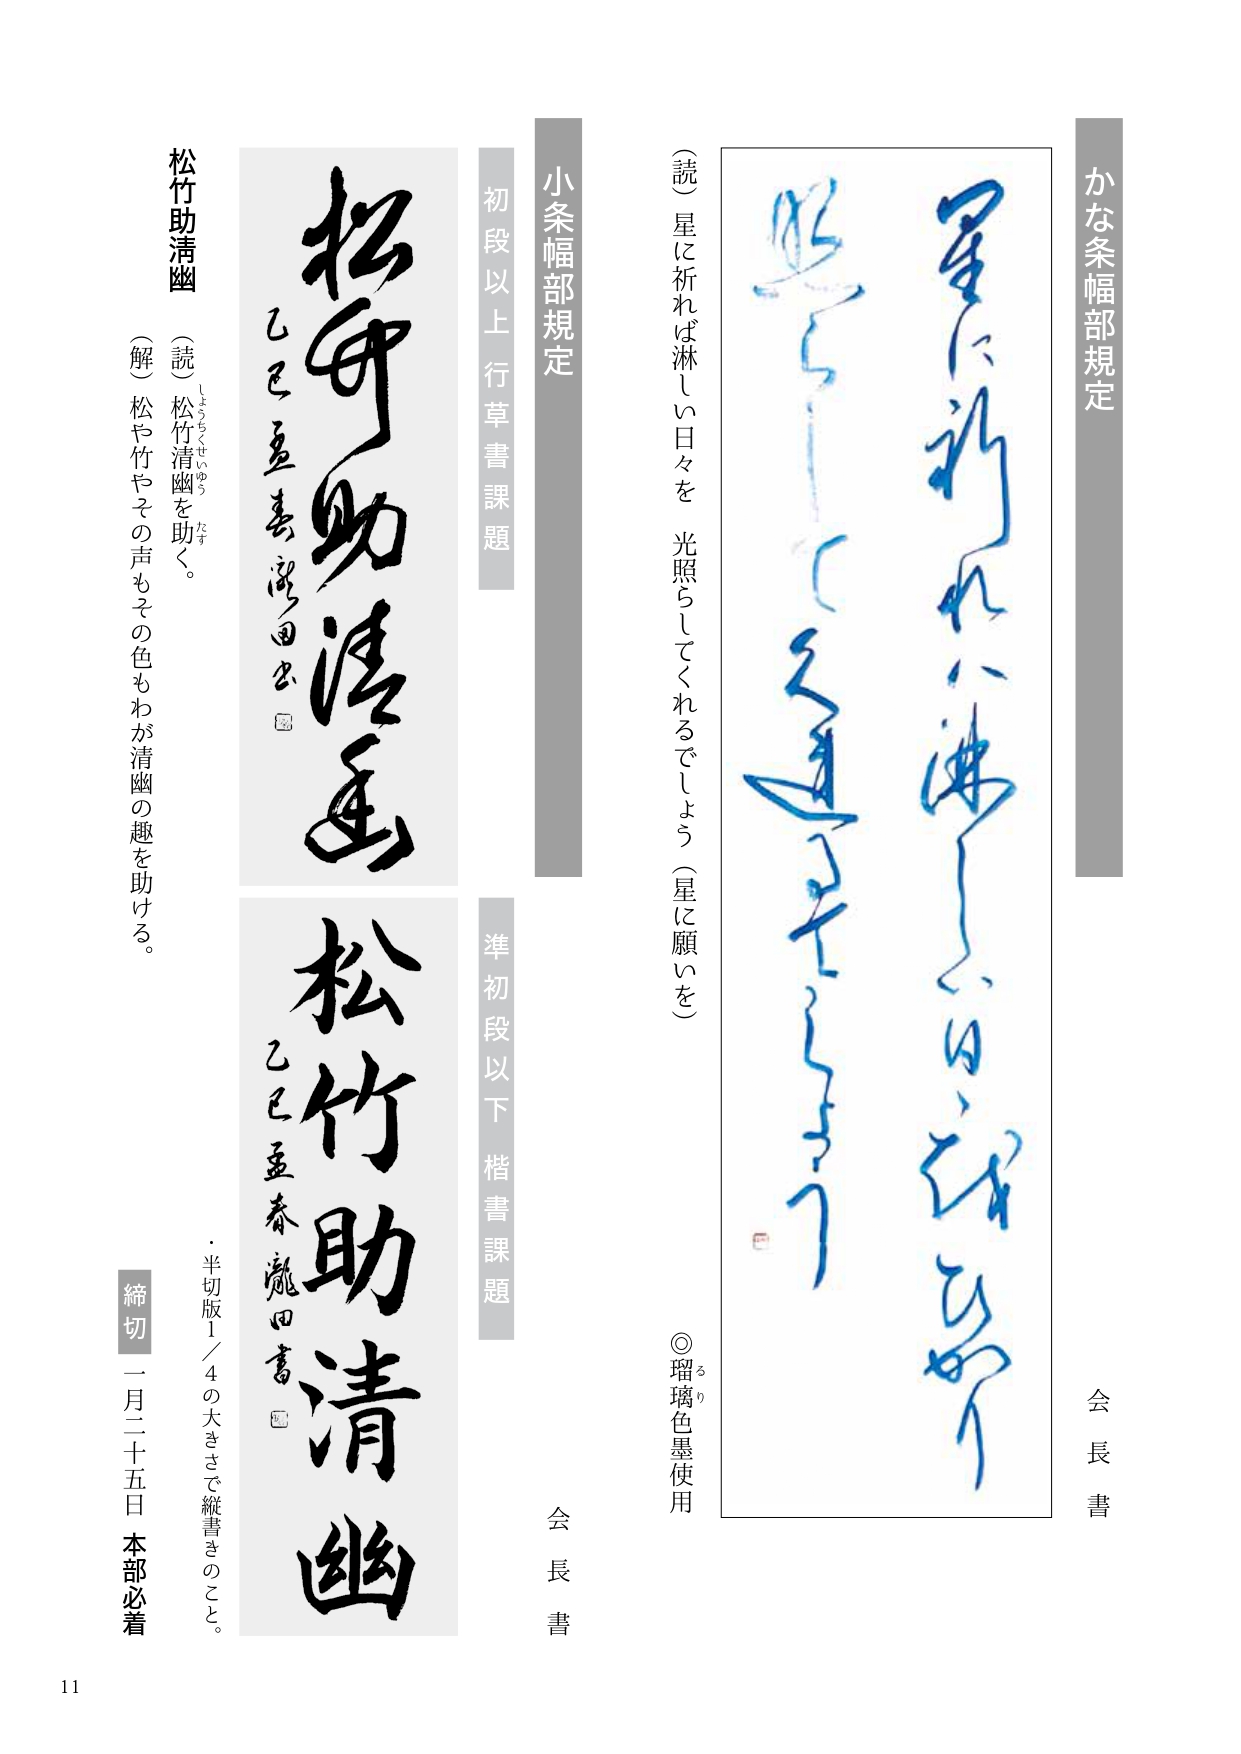 かな条幅部規定
会長書
星に祈れハ淋しい日々越ひかり
照らして久連るてしよう
(読) 星に祈れば淋しい日々を 光照らしてくれるでしょう (星に願いを)
◎瑠璃色墨使用
るり
小条幅部規定
会長書
初段以上 行草書課題
松竹助清幽
乙巳孟春瀧田書
準初段以下 楷書課題
松竹助清幽
乙巳孟春瀧田書
・半切版1/4の大きさで縦書きのこと。
松竹助淸幽
(読) 松竹清幽を助く。
しょうちくせいゆう たす
(解) 松や竹やその声もその色もわが清幽の趣を助ける。
締切 一月二十五日 本部必着
11